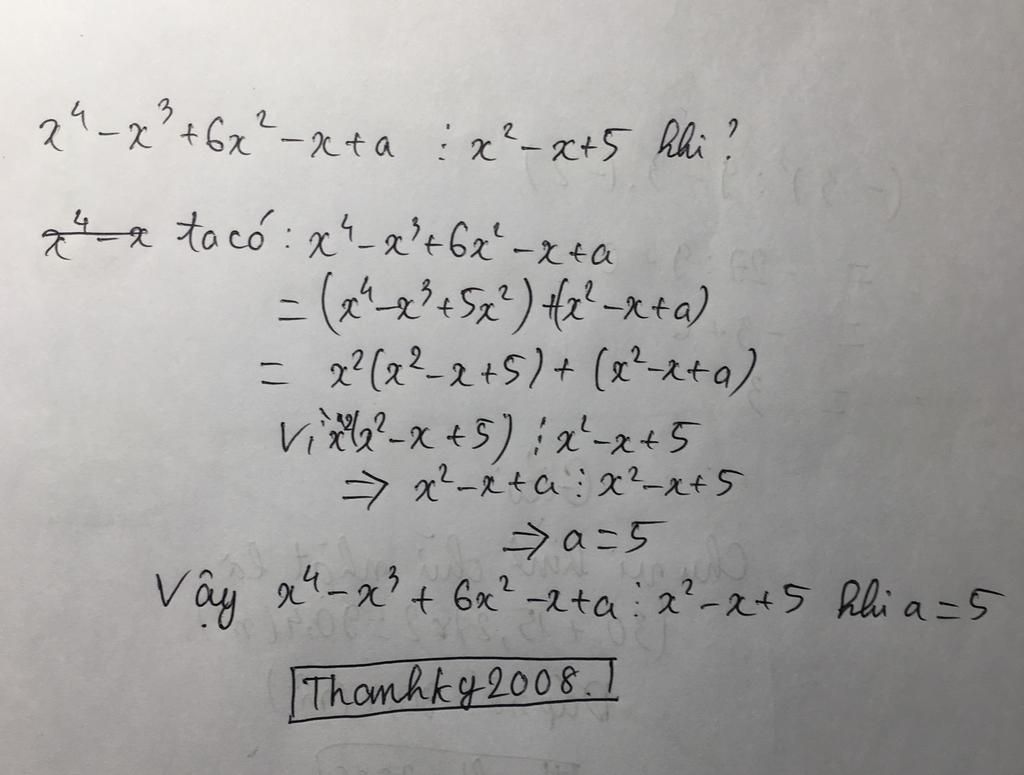 x⁴ - x³ + 6x² - x + a ⋮ x² - x + 5 khi?
x⁴ - x ta có: x⁴ - x³ + 6x² - x + a
= (x⁴ - x³ + 5x²) + (x² - x + a)
= x²(x² - x + 5) + (x² - x + a)
Vì x²(x² - x + 5) ⋮ x² - x + 5
⇒ x² - x + a ⋮ x² - x + 5
⇒ a = 5
Vậy x⁴ - x³ + 6x² - x + a ⋮ x² - x + 5 khi a = 5
Thanhky2008.